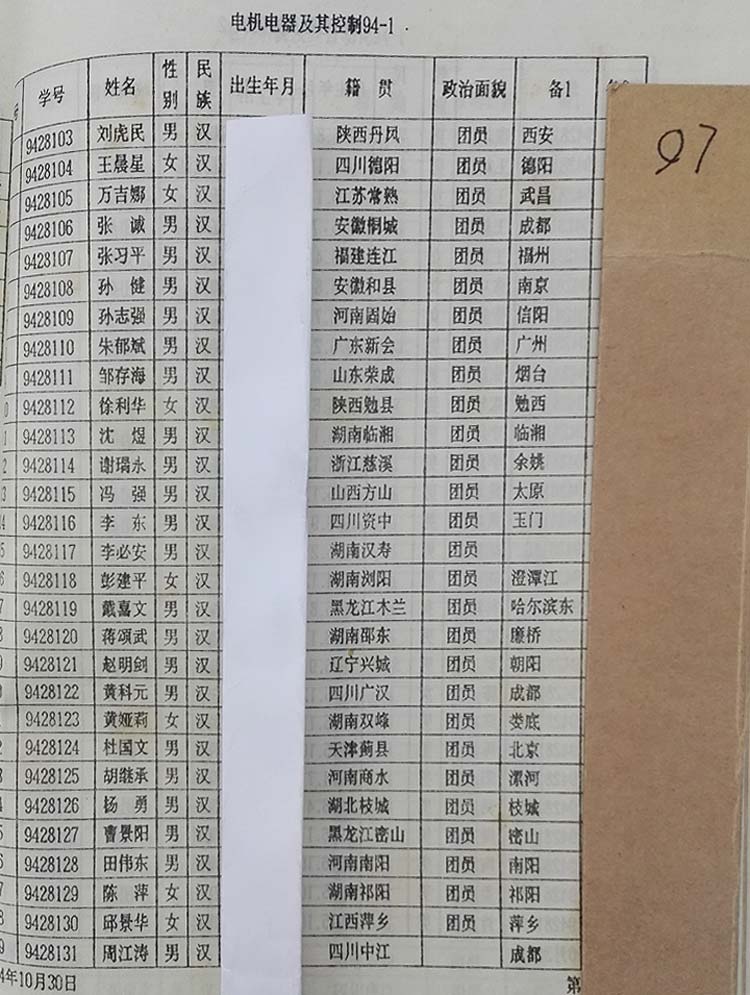 电机电器及其控制94-1
学号 姓名 性别 民族 出生年月 籍贯 政治面貌 备1
97
9428103 刘虎民 男 汉 陕西丹凤 团员 西安
9428104 王晨星 女 汉 四川德阳 团员 德阳
9428105 万吉娜 女 汉 江苏常熟 团员 武昌
9428106 张诚 男 汉 安徽桐城 团员 成都
9428107 张习平 男 汉 福建连江 团员 福州
9428108 孙健 男 汉 安徽和县 团员 南京
9428109 孙志强 男 汉 河南固始 团员 信阳
9428110 朱郁斌 男 汉 广东新会 团员 广州
9428111 邹存海 男 汉 山东荣成 团员 烟台
9428112 徐利华 女 汉 陕西勉县 团员 勉西
9428113 沈煜 男 汉 湖南临湘 团员 临湘
9428114 谢瑞永 男 汉 浙江慈溪 团员 余姚
9428115 冯强 男 汉 山西方山 团员 太原
9428116 李东 男 汉 四川资中 团员 玉门
9428117 李必安 男 汉 湖南汉寿 团员
9428118 彭建平 女 汉 湖南浏阳 团员 澄潭江
9428119 戴嘉文 男 汉 黑龙江木兰 团员 哈尔滨东
9428120 蒋颂武 男 汉 湖南邵东 团员 廉桥
9428121 赵明剑 男 汉 辽宁兴城 团员 朝阳
9428122 黄科元 男 汉 四川广汉 团员 成都
9428123 黄娅莉 女 汉 湖南双峰 团员 娄底
9428124 杜国文 男 汉 天津蓟县 团员 北京
9428125 胡继承 男 汉 河南商水 团员 漯河
9428126 杨勇 男 汉 湖北枝城 团员 枝城
9428127 曹景阳 男 汉 黑龙江密山 团员 密山
9428128 田伟东 男 汉 河南南阳 团员 南阳
9428129 陈萍 女 汉 湖南祁阳 团员 祁阳
9428130 邱景华 女 汉 江西萍乡 团员 萍乡
9428131 周江涛 男 汉 四川中江 成都
4年10月30日 第